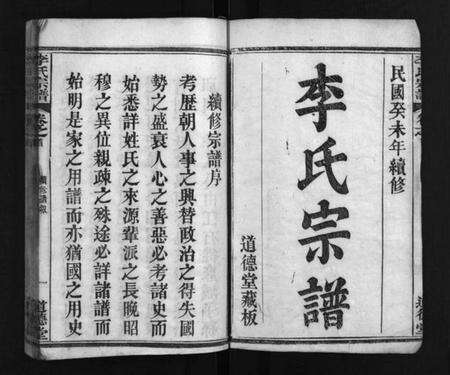 民國癸未年續修
李氏宗譜
道德堂藏板
續修宗譜序
考歷朝人事之興替政治之得失國
勢之盛衰人心之善惡必考諸史而
始悉詳姓氏之來源輩派之長晚昭
穆之異位親疎之殊途必詳諸譜而
始明是家之用譜而亦猶國之用史
李氏宗譜
卷之首
一
道德堂